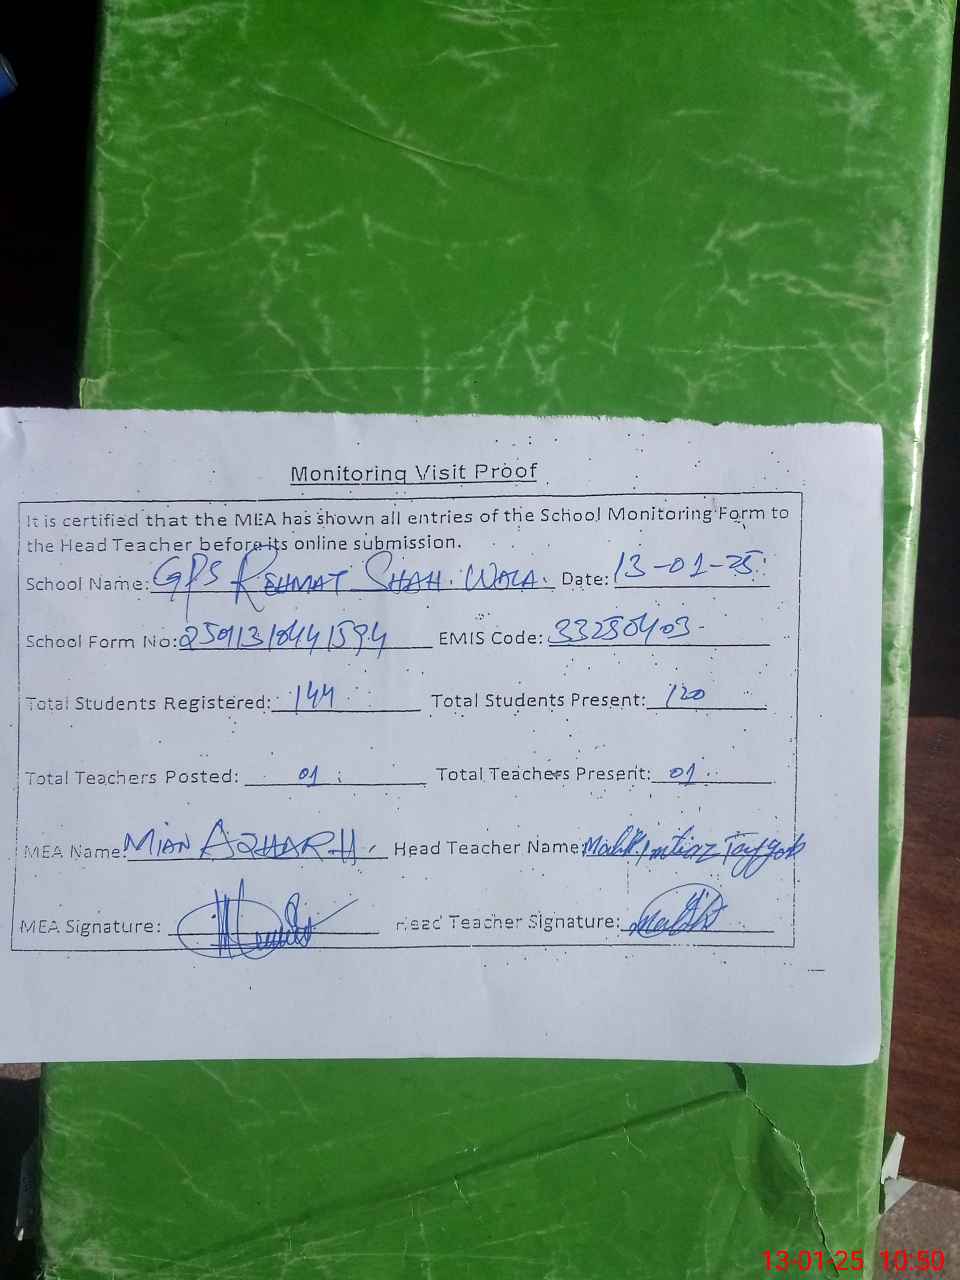 Monitoring Visit Proof
It is certified that the MEA has shown all entries of the School Monitoring Form to
the Head Teacher before its online submission.
School Name: GPS REHMAT SHAH. WALA. Date: 13-01-25
School Form No: EMIS Code: 33280403
Total Students Registered: 144 Total Students Present: 120
Total Teachers Posted: 01 Total Teachers Present: 01
MEA Name: MIAN AZHAR H. Head Teacher Name: Malik Imtiaz Tayyab
MEA Signature: Head Teacher Signature:
13-01-25 10:50